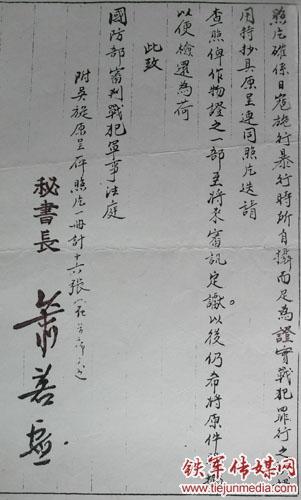 照片確係日寇施行暴行時所自攝而足為證實戰犯罪行之
用特抄具原呈連同照片送請
查照俾作物證之一部至將來審訊定讞以後仍希將原件
以便檢還為荷
此致
國防部審判戰犯軍事法庭
附吳旋原呈一件照片一冊計十六張
秘書長 蕭善
铁军传媒网
www.tiejunmedia.com